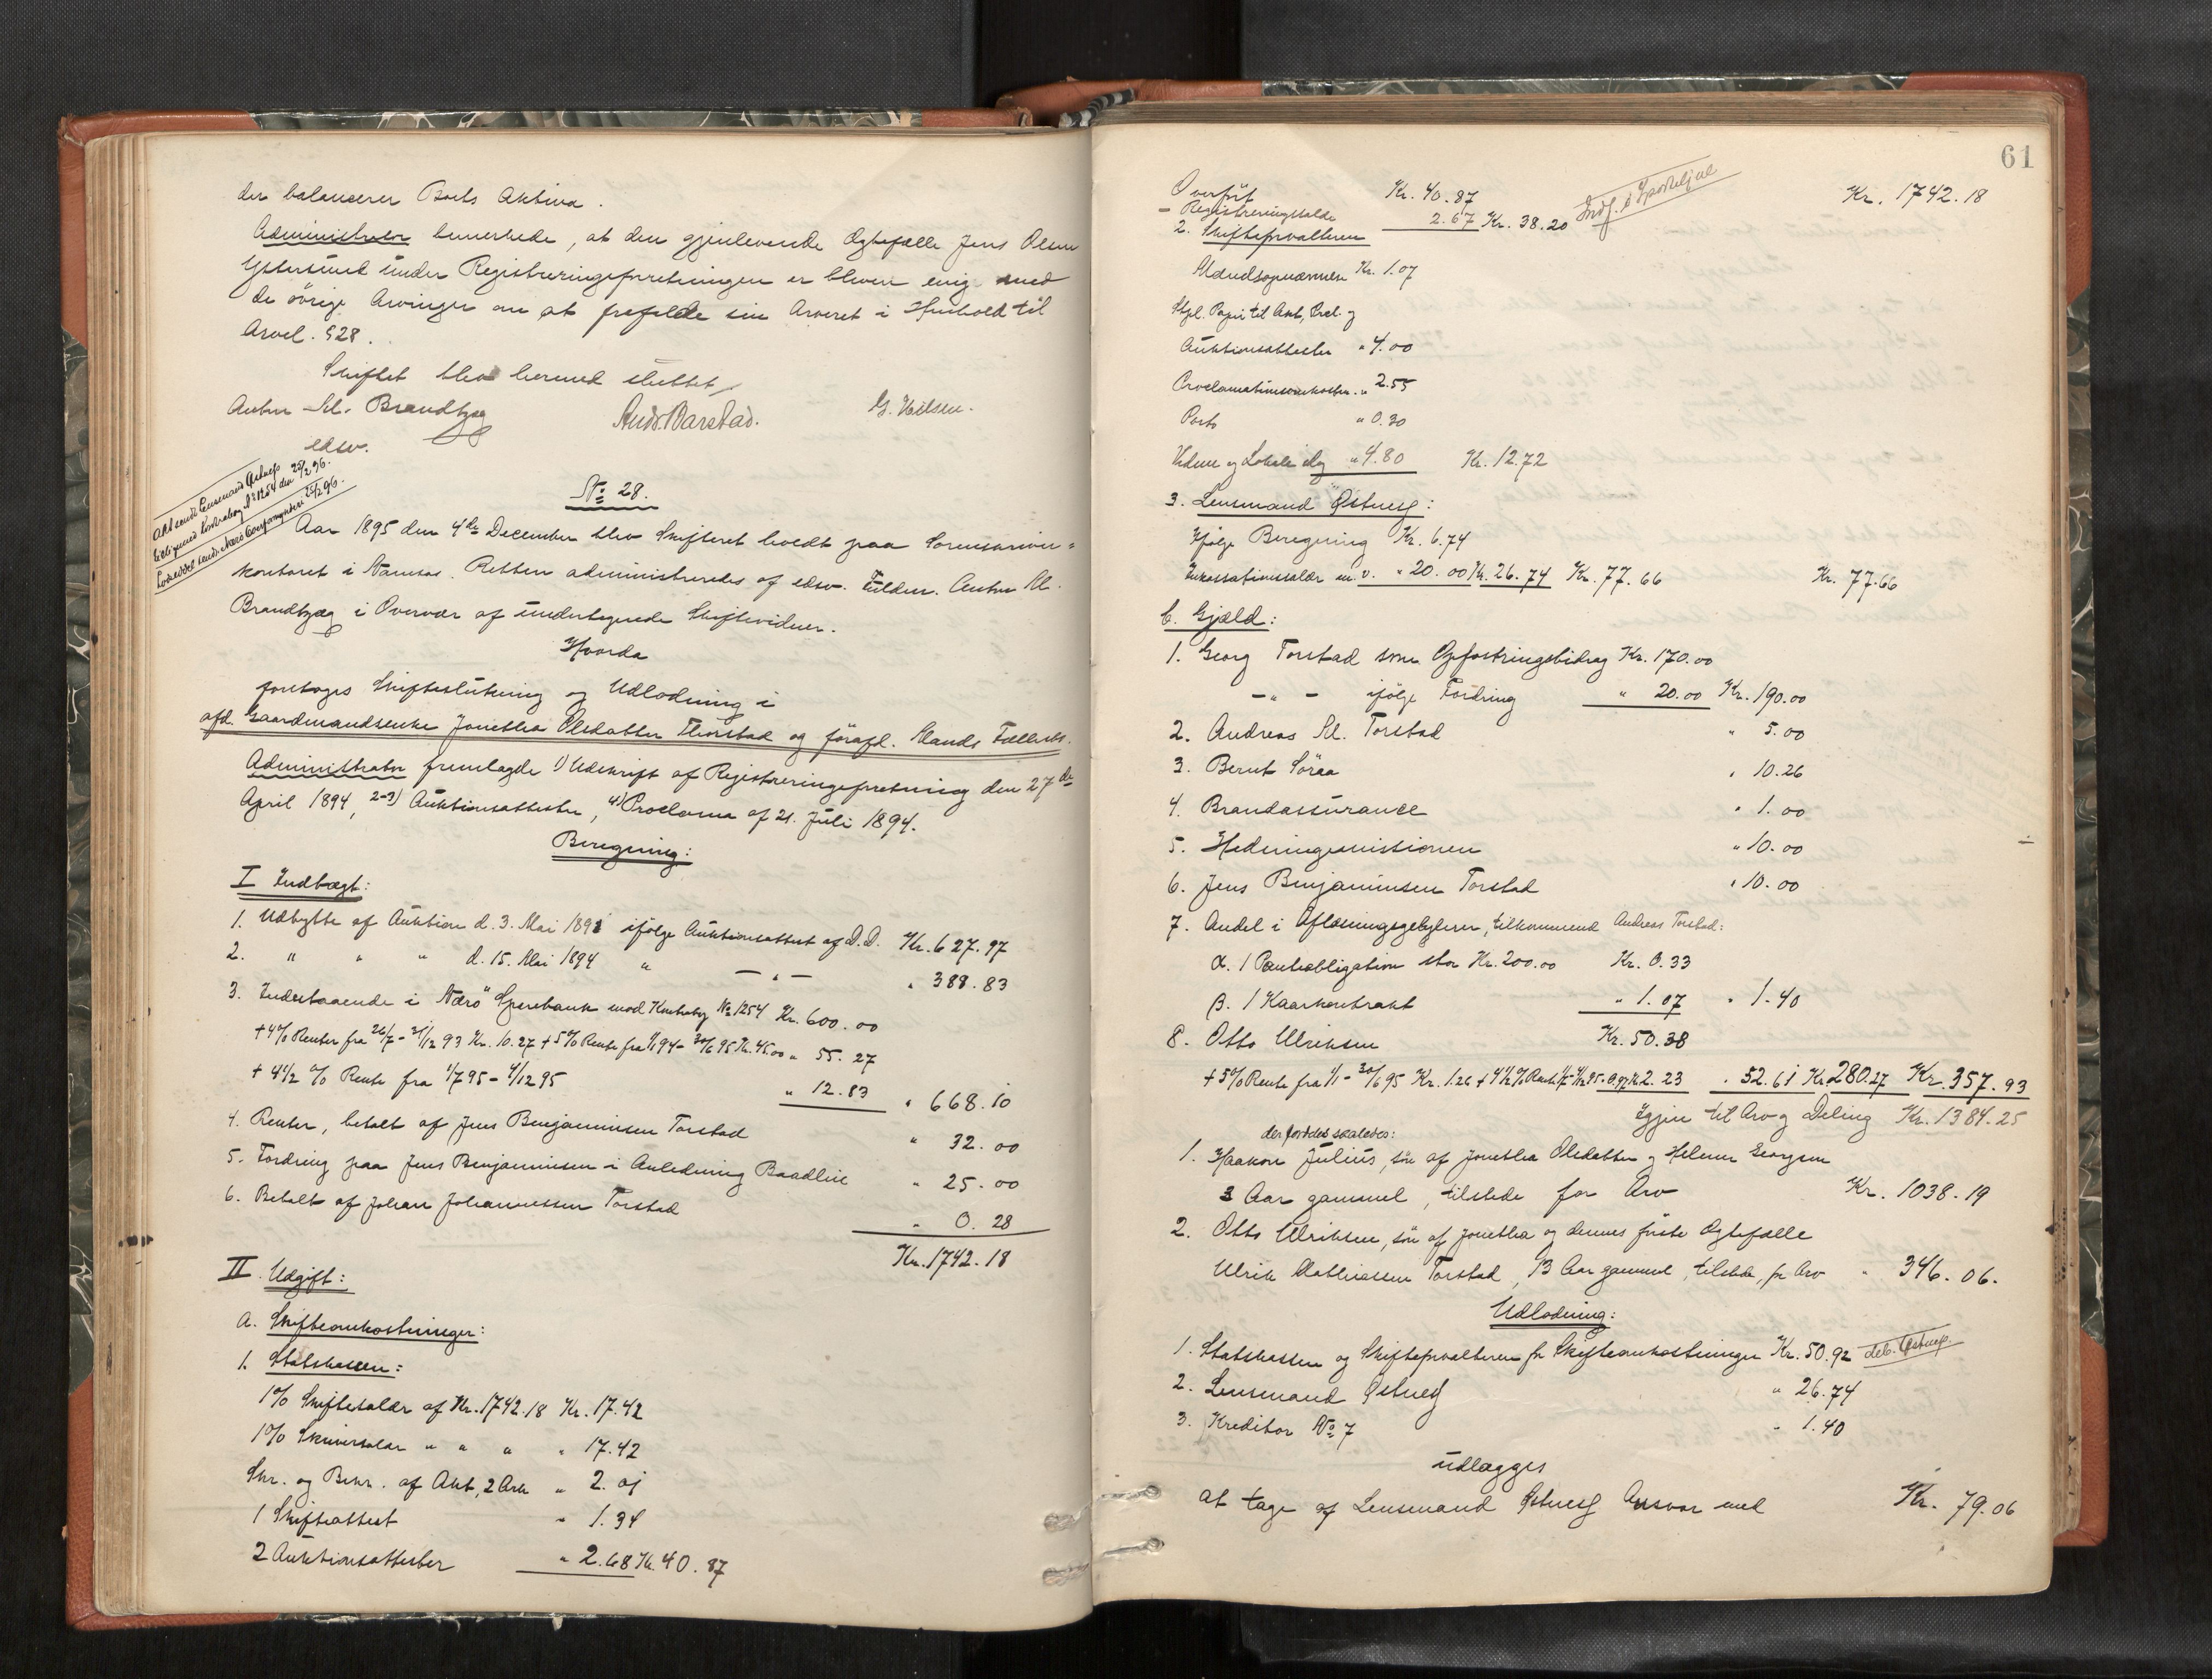 der balancerer Boets Aktiva.
Administrator bemerkede, at den gjenlevende Ægtefælle Jens Olsen
under Registreringsforretningen er bleven enig med
de övrige Arvinger om at frafalde sin Arveret i Henhold til
Arvel. § 28.
Skiftet blev hermed sluttet
Anton M. Brandtzæg
edsv.
Ands. Barstad.
G. Nilsen.
No 28.
Aar 1895 den 4de December blev Skifteret holdt paa Sorenskriver-
kontoret i Namsos. Retten administreredes af edsv. Fuldm. Anton M.
Brandtzæg i Overvær af undertegnede Skiftevidner.
Hvorda
foretoges Skifteslutning og Udlodning i
afd. Gaardmandsenke Jonethea Olsdatter Thorstad og förafd. Mands Fællesb.
Administrator fremlagde 1) Udskrift af Registreringsforretning den 27de
April 1894, 2-3) Auktionsattester, 4) Proclama af 21. Juli 1894.
Beregning:
I Indtægt:
1. Udbytte af Auktion d. 3. Mai 189 ifölge Auktionsattest af D.D. Kr. 627.97
2. " " " d. 15. Mai 1894 " - " - " 388.83
3. Indestaaende i Nærö Sparebank mod Kontrabog No 1254 Kr. 600.00
+ 4% Renter fra 26/7 - 31/12 93 Kr. 10.27 + 5% Rente fra 1/1 94 - 30/6 95 Kr. 45.00 " 55.27
+ 4 1/2 % Rente fra 1/7 95 - 4/12 95 " 12.83 " 668.10
4. Renter, betalt af Jens Benjaminsen Torstad " 32.00
5. Fordring paa Jens Benjaminsen i Anledning Baadleie " 25.00
6. Betalt af Johan Johannessen Torstad " 0.28
Kr. 1742.18
II. Udgift:
a. Skifteomkostninger:
1. Statskassen:
1% Skiftesalær af Kr. 1742.18 Kr. 17.42
1% Skriversalær " " " " 17.42
Skr. og Bekr. af Akt, 2 Ark " 2.01
1 Skifteattest " 1.34
2 Auktionsattester " 2.68 Kr. 40.87
61
Overfört Kr. 40.87 Kr. 1742.18
- Registreringssalær 2.67 Kr. 38.20 Indf. i Sportelj
2. Skifteforvalteren
Mændsopnævnelse Kr. 1.07
Stpl. Papir til Akt, Procl. og
Auktionsattester " 4.00
Proclamationsomkostn. " 2.55
Porto " 0.30
Vidner og Lokale idag " 4.80 Kr. 12.72
3. Lensmand Östnes:
Ifölge Beregning Kr. 6.74
Inkassationssalær m.v. " 20.00 Kr. 26.74 Kr. 77.66 Kr. 77.66
b. Gjæld:
1. Georg Torstad som Opfostringsbidrag Kr. 170.00
- " - ifölge Fordring " 20.00 Kr. 190.00
2. Andreas M. Torstad " 5.00
3. Bernt Söraa " 10.26
4. Brandassurance " 1.00
5. Hedningemissionen " 10.00
6. Jens Benjaminsen Torstad " 10.00
7. Andel i Aflæsningsgebyrer, tilkommend Andreas Torstad:
α. 1 Panteobligation stor Kr. 200.00 Kr. 0.33
β. 1 Kaarkontrakt " 1.07 " 1.40
8. Otto Ulriksen Kr. 50.38
+ 5% Rente fra 1/1 - 30/6 95 Kr. 1.26 + 4 1/2 % Rente 1/7 - 4/12 95 - 0.97 Kr. 2.23 " 52.61 Kr. 280.27 Kr. 357.93
Igjen til Arv og Deling Kr. 1384.25
der fordeles saaledes:
1. Haakon Julius, sön af Jonethea Olsdatter og Helmer Georgsen
3 Aar gammel, tilstede for Arv Kr. 1038.19
2. Otto Ulriksen, sön af Jonethea og dennes förste Ægtefælle
Ulrik Mathiassen Torstad, 13 Aar gammel, tilstede, for Arv " 346.06.
Udlodning:
1. Statskassen og Skifteforvalteren for Skifteomkostninger Kr. 50.92 deb. Östnes.
2. Lensmand Östnes " 26.74
3. Kreditor No 7 " 1.40
udlægges
at tage af Lensmand Östnes Ansvar med Kr. 79.06